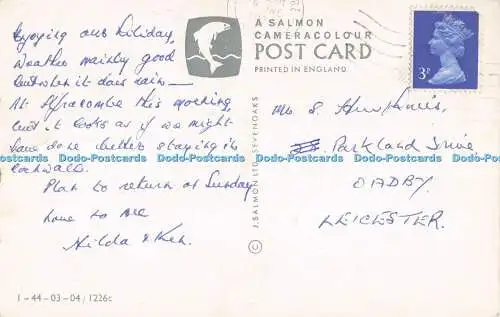 Enjoying our holiday,
Weather mainly good
but when it does rain —
At Ilfracombe this morning
but it looks as if we might
have done better staying in
Cornwall.
Plan to return on Sunday
love to all
Hilda & Ken.
A SALMON
CAMERACOLOUR
POST CARD
PRINTED IN ENGLAND
J. SALMON LTD. SEVENOAKS ©
3P
Mr S.
Parkland Drive
OADBY
LEICESTER.
1-44-03-04/1226c
Dodo-Postcards Dodo-Postcards Dodo-Postcards Dodo-Postcards Dodo-Postcards